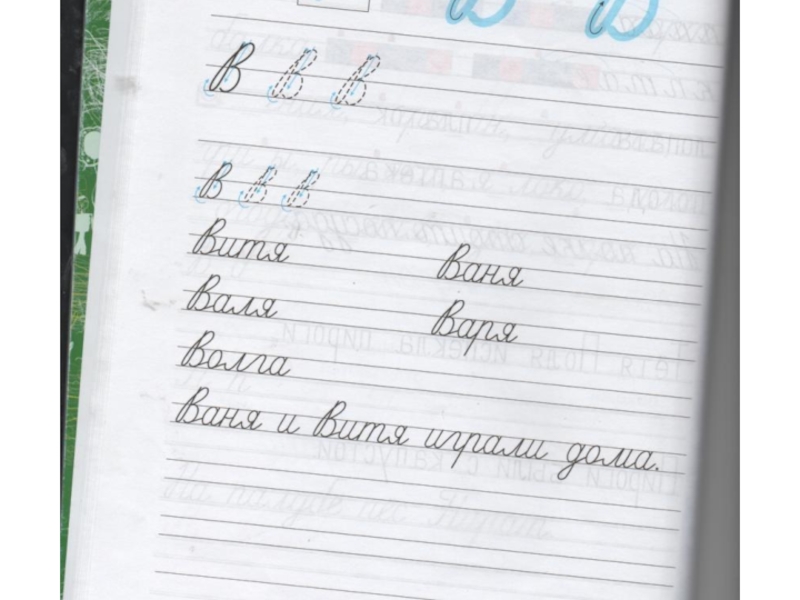 В В В
В В В
Витя Ваня
Валя Варя
Волга
Ваня и Витя играли дома.